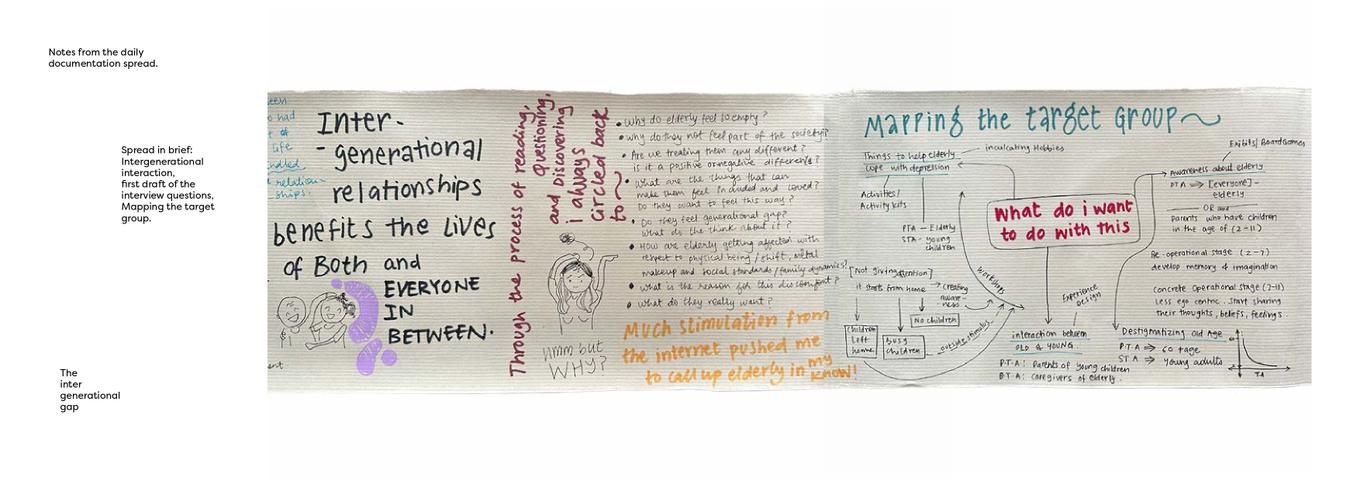 Notes from the daily
documentation spread.
Spread in brief:
Intergenerational
interaction,
first draft of the
interview questions,
Mapping the target
group.
The
inter
generational
gap
een
o had
life
relation-
ships.
Inter-
- generational
relationships
benefits the lives
of Both and
EVERYONE
IN
BETWEEN.
ent
Through the process of reading,
questioning,
and Discovering
i always
circled back
to~
Hmm but
WHY?
• Why do elderly feel so empty?
• why do they not feel part of the society?
• Are we treating them any different?
is it a positive or negative difference?
• What are the things that can
make them feel included and loved?
Do they want to feel this way?
• Do they feel generational gap?
What do the think about it?
• How are elderly getting affected with
respect to physical being/shift,
makeup and social standards/family dynamics?
• what is the reason for this discomfort?
• what do they really want?
Much stimulation from
the internet pushed me
to call up elderly in my
know!
Mapping the target Group~
Things to help elderly
cope with depression
inculcating Hobbies
Activities/
Activity kits
PTA - Elderly
STA - young
children
[Not giving attention]
it starts from home → creating
aware-
ness
No children
Children
left
home
busy
children
outside stimulus
workshop
What do i want
to do with this
Experience
Design
interaction between
OLD & YOUNG
P.T.A: Parents of young children
caregivers of elderly.
Exhibits/BoardGames
Awareness about elderly
PTA ⇒ [everyone] -
elderly
OR
Parents who have children
in the age of (2-11)
Pre-operational stage (2-7)
develop memory & imagination
Concrete Operational stage (7-11)
Less ego centric. Start sharing
their thoughts, beliefs, feelings.
Destigmatizing old Age
P.T.A ⇒ 60+age
ST.A ⇒ Young adults
TA